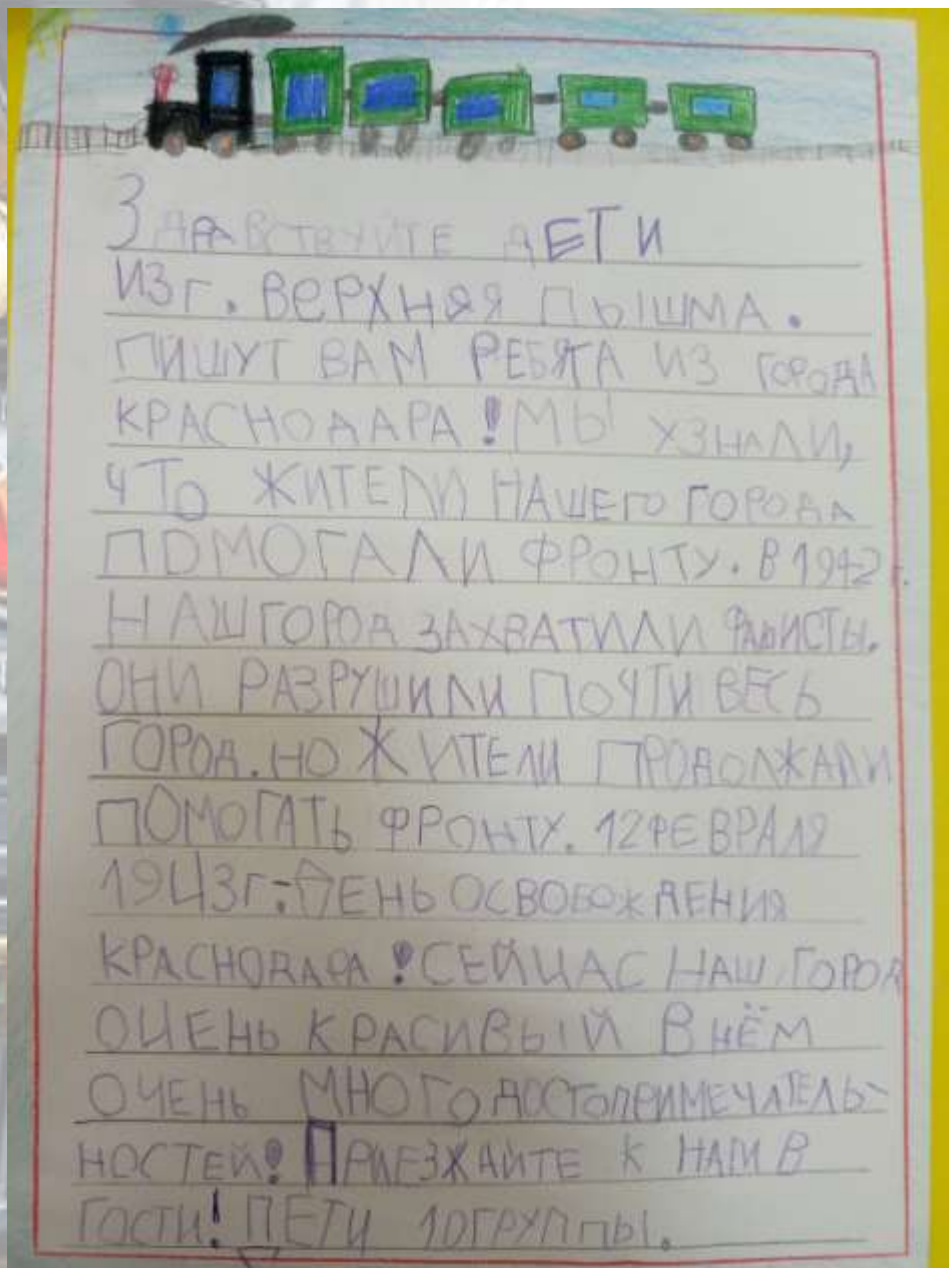 ЗДРАВСТВУЙТЕ ДЕТИ
ИЗ Г. ВЕРХНЯЯ ПЫШМА.
ПИШУТ ВАМ РЕБЯТА ИЗ ГОРОДА
КРАСНОДАРА! МЫ УЗНАЛИ,
ЧТО ЖИТЕЛИ НАШЕГО ГОРОДА
ПОМОГАЛИ ФРОНТУ. В 1942 г.
НАШ ГОРОД ЗАХВАТИЛИ ФАШИСТЫ.
ОНИ РАЗРУШИЛИ ПОЧТИ ВЕСЬ
ГОРОД. НО ЖИТЕЛИ ПРОДОЛЖАЛИ
ПОМОГАТЬ ФРОНТУ. 12 ФЕВРАЛЯ
1943г-ДЕНЬ ОСВОБОЖДЕНИЯ
КРАСНОДАРА! СЕЙЦАС НАШ ГОРОД
ОЦЕНЬ КРАСИВЫЙ В НЁМ
ОЧЕНЬ МНОГО ДОСТОПРИМЕЧАТЕЛЬ-
НОСТЕЙ! ПРИЕЗЖАЙТЕ К НАМ В
ГОСТИ! ДЕТИ 10 ГРУППЫ.